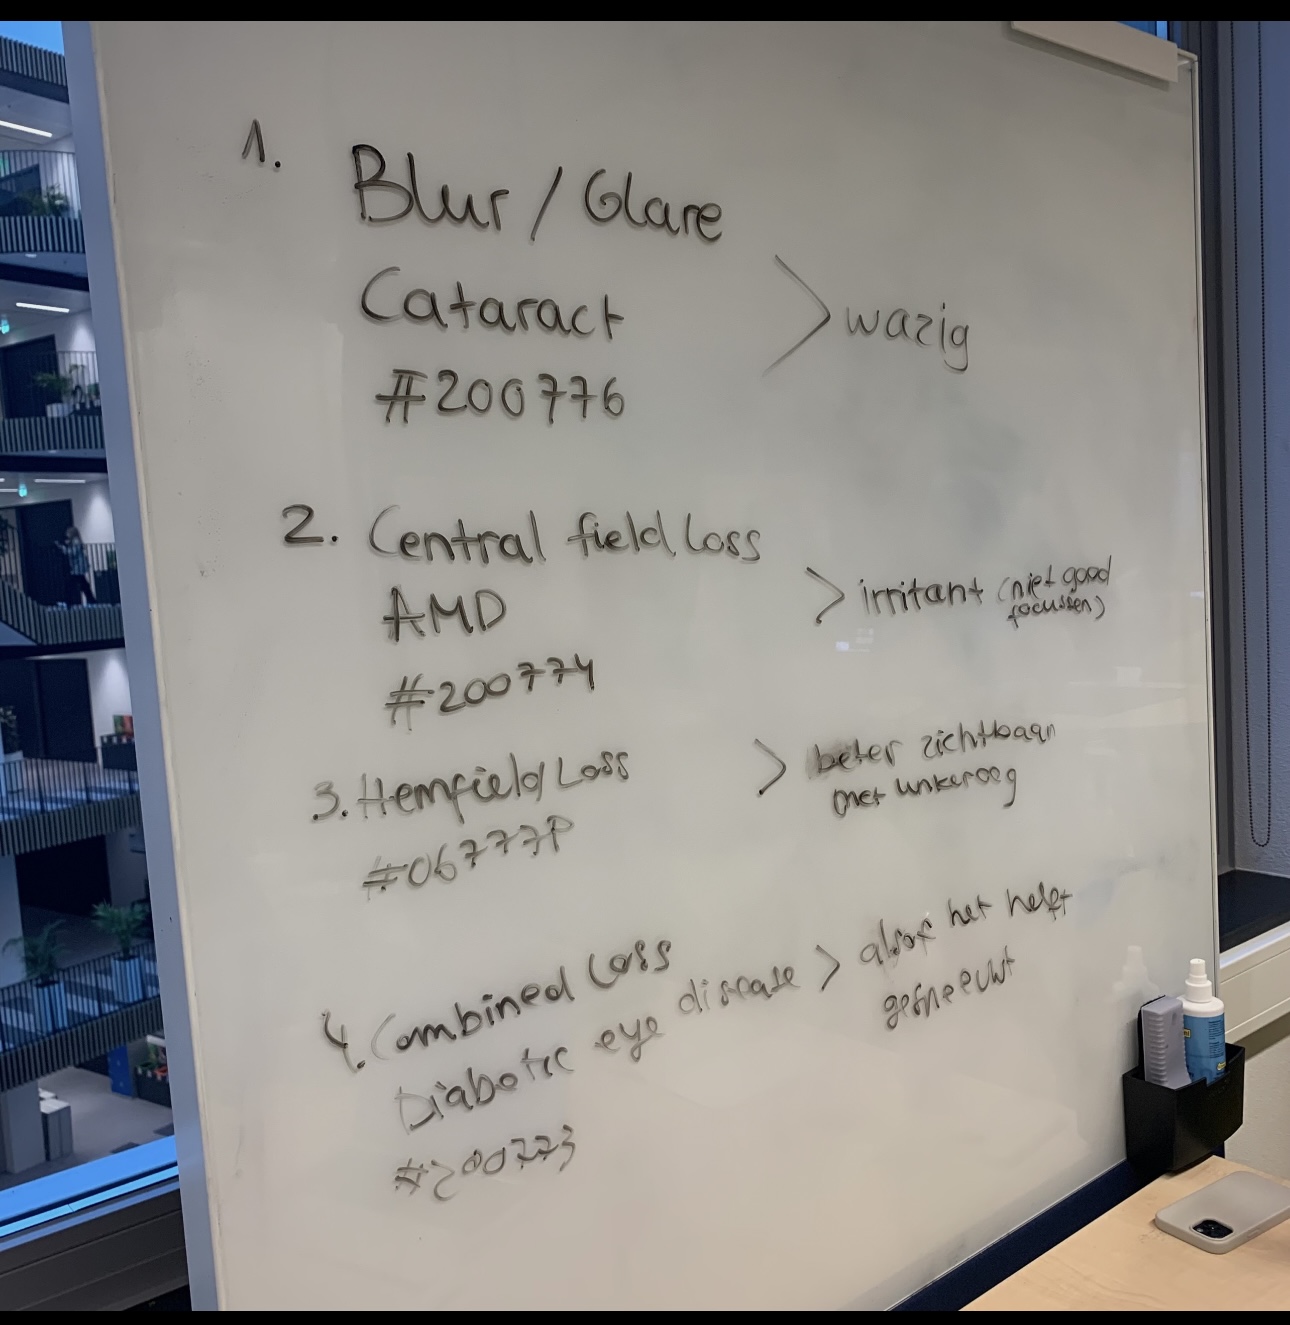 1. Blur / Glare
Cataract
#200776
> wazig
2. Central field Loss
AMD
#200774
> irritant (niet good
focussen)
3. Hemfield Loss
#06777P
> beter zichtbaar
met linkeroog
4. Combined Loss
Diabetic eye disease
#200773
> alsof het helft
gesneeuwt